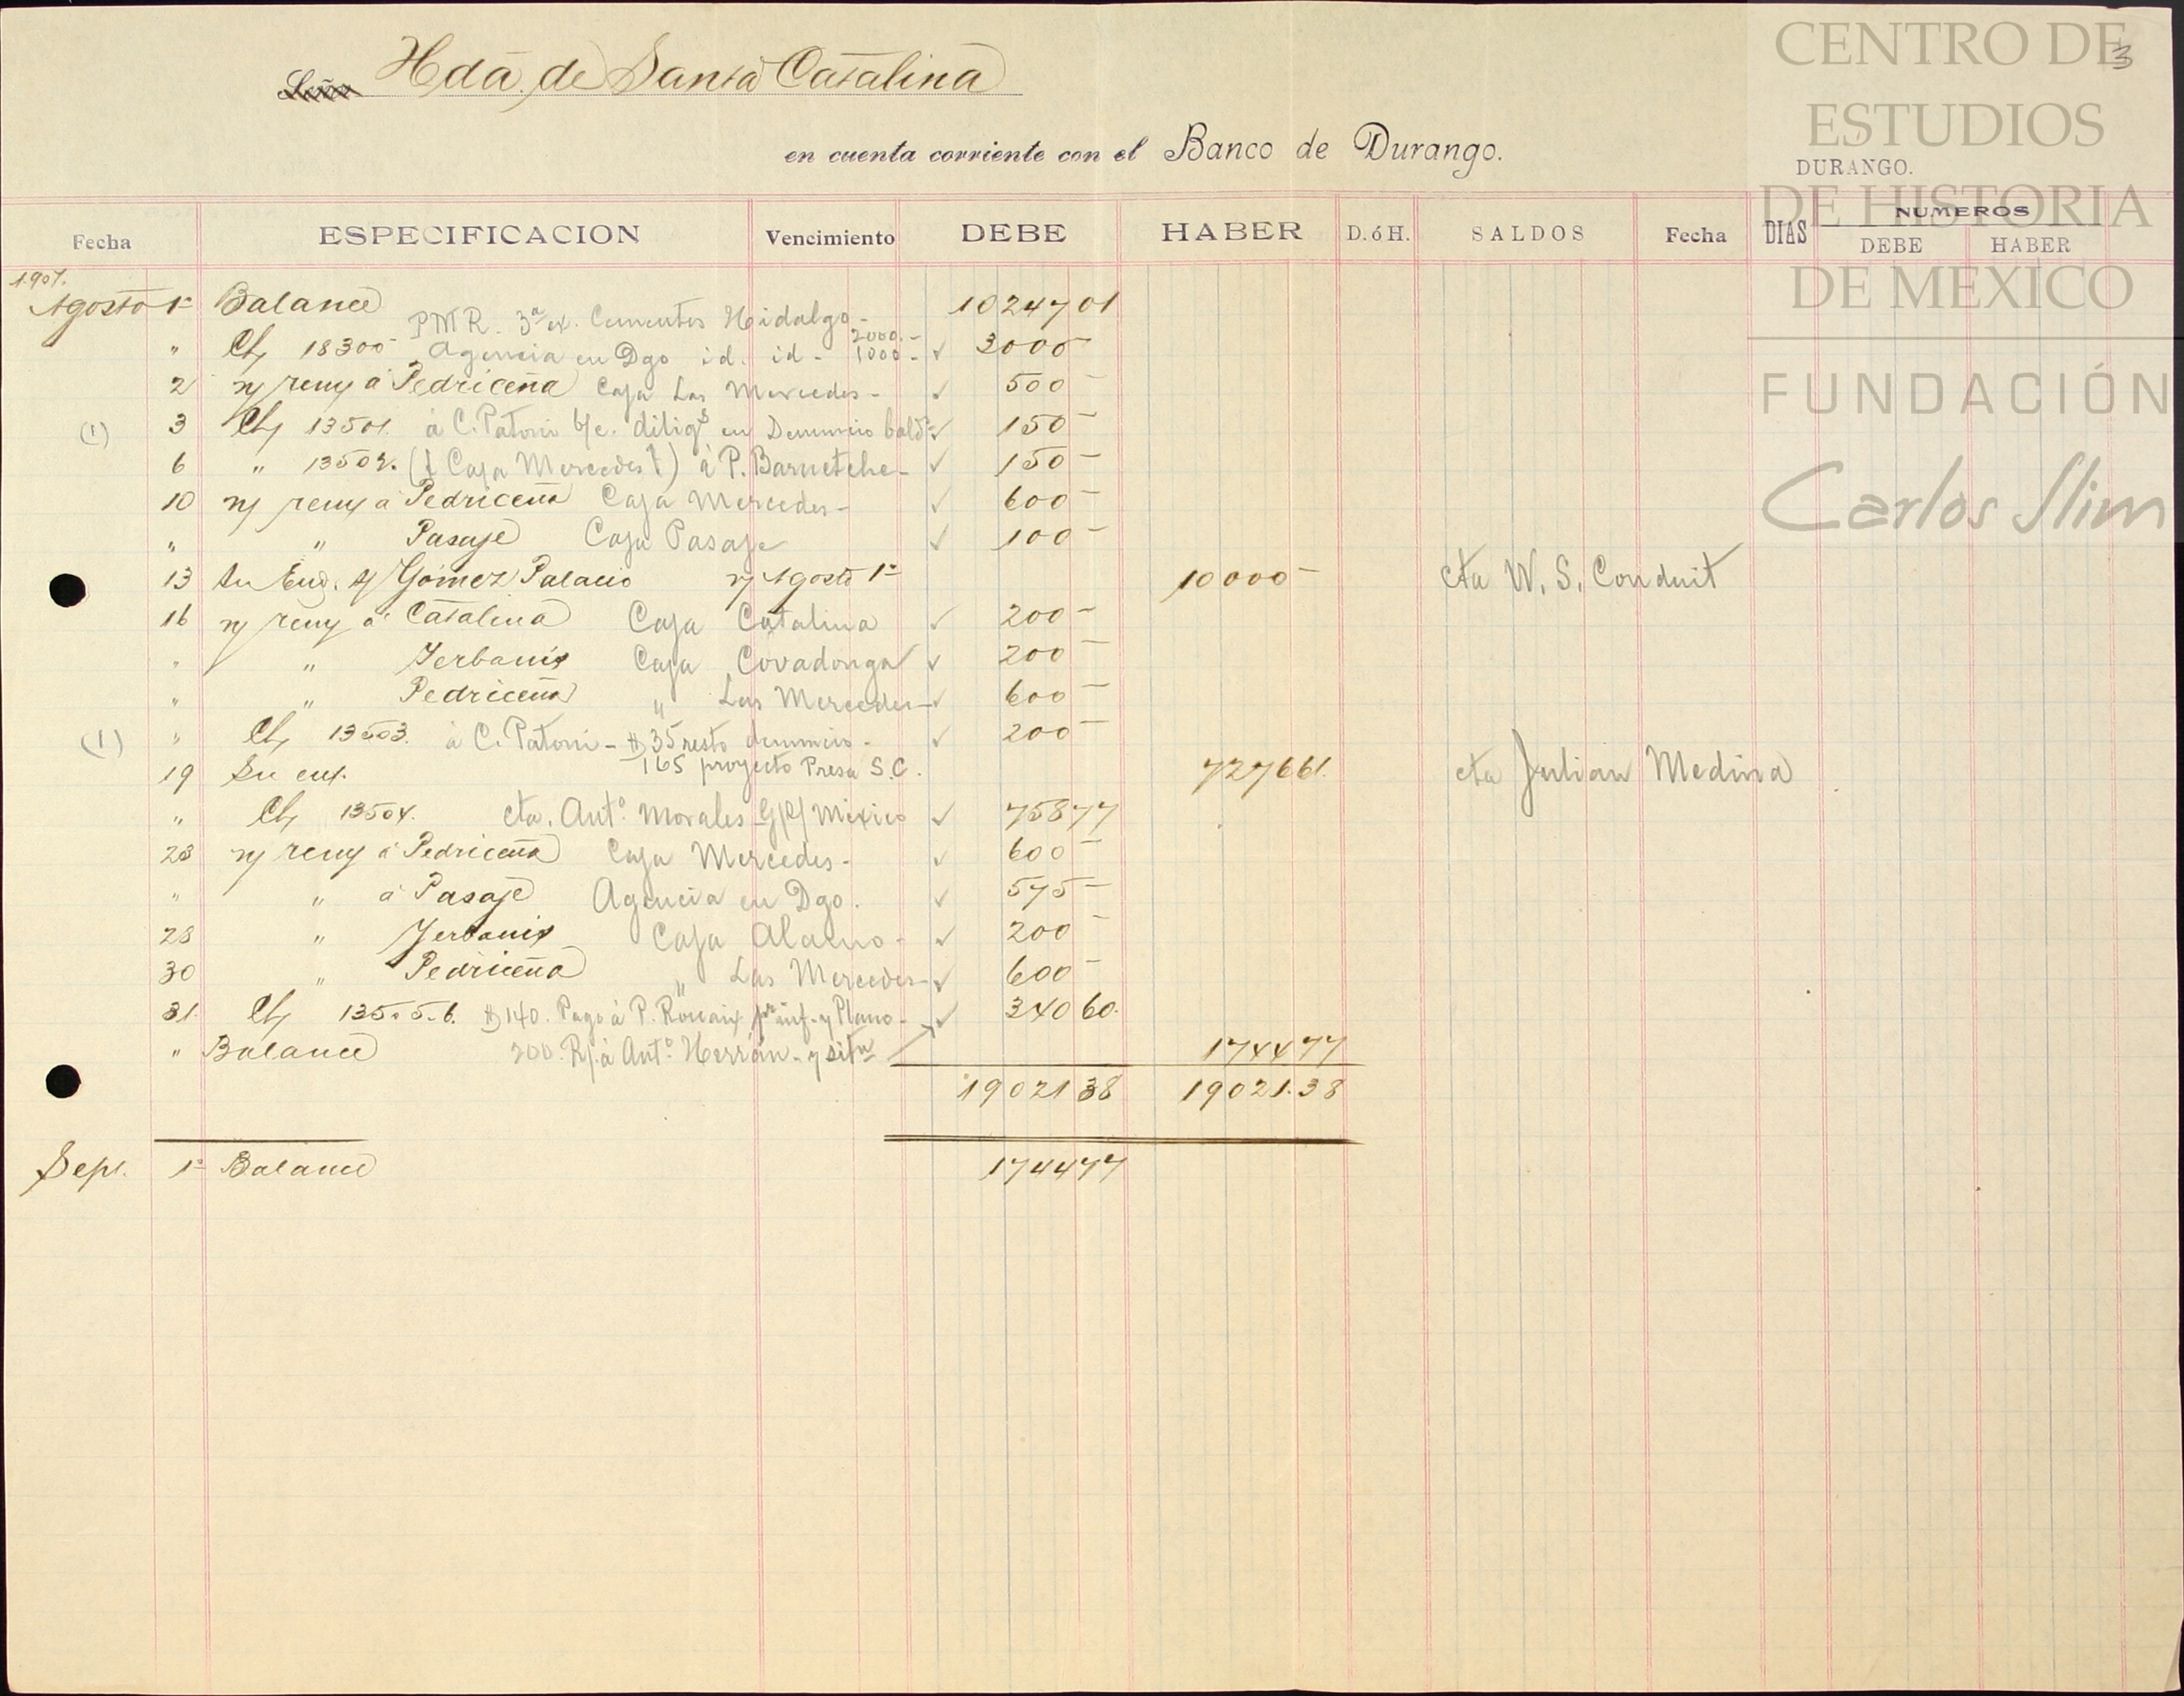 3
CENTRO DE
ESTUDIOS
DE HISTORIA
DE MEXICO
FUNDACIÓN
Carlos Slim
Señor Hda. de Santa Catalina
en cuenta corriente con el Banco de Durango.
DURANGO.
Fecha ESPECIFICACION Vencimiento DEBE HABER D. ó H. SALDOS Fecha DIAS NUMEROS
DEBE HABER
1907.
Agosto 1º Balance 10247 01
PMR. 3ª ex. Cementos Hidalgo - 2000.-
" Ch/ 18300 Agencia en Dgo id. id - 1000 - ✓ 3000 -
2 n/ rem/ á Pedriceña Caja Las Mercedes - ✓ 500 -
(1) 3 Ch/ 13501. á C. Patoni b/c. diligs en Denuncio bald ✓ 150 -
6 " 13502. (Caja Mercedes) á P. Barnetche - ✓ 150 -
10 n/ rem/ a Pedriceña Caja Mercedes - ✓ 600 -
" " Pasaje Caja Pasaje ✓ 100 -
13 Gómez Palacio n/ Agosto 1º 10000 - cta W. S. Conduit
16 n/ rem/ á Catalina Caja Catalina ✓ 200 -
" " Yerbanis Caja Covadonga ✓ 200 -
" " Pedriceña " Las Mercedes - ✓ 600 -
(1) " Ch/ 13503. á C. Patoni - $35 resto denuncio - ✓ 200 -
165 proyecto Presa S.C.
19 Su ent. 7276 61. cta Julian Medina
" Ch/ 13504. cta. Antº Morales G/P/ México ✓ 758 77
23 n/ rem/ á Pedriceña Caja Mercedes - ✓ 600 -
" " á Pasaje Agencia en Dgo. ✓ 575 -
28 " Yerbanis Caja Alamo - ✓ 200 -
30 " Pedriceña " Las Mercedes - ✓ 600 -
31. Ch/ 13505-6. $140. Pago á P. Rouaix pr inf. y Plano - ✓ 340 60.
" Balance 200. R/. á Antº Herrán - y sitn 1744 77
19021 38 19021.38
Sept. 1º Balance 1744 77